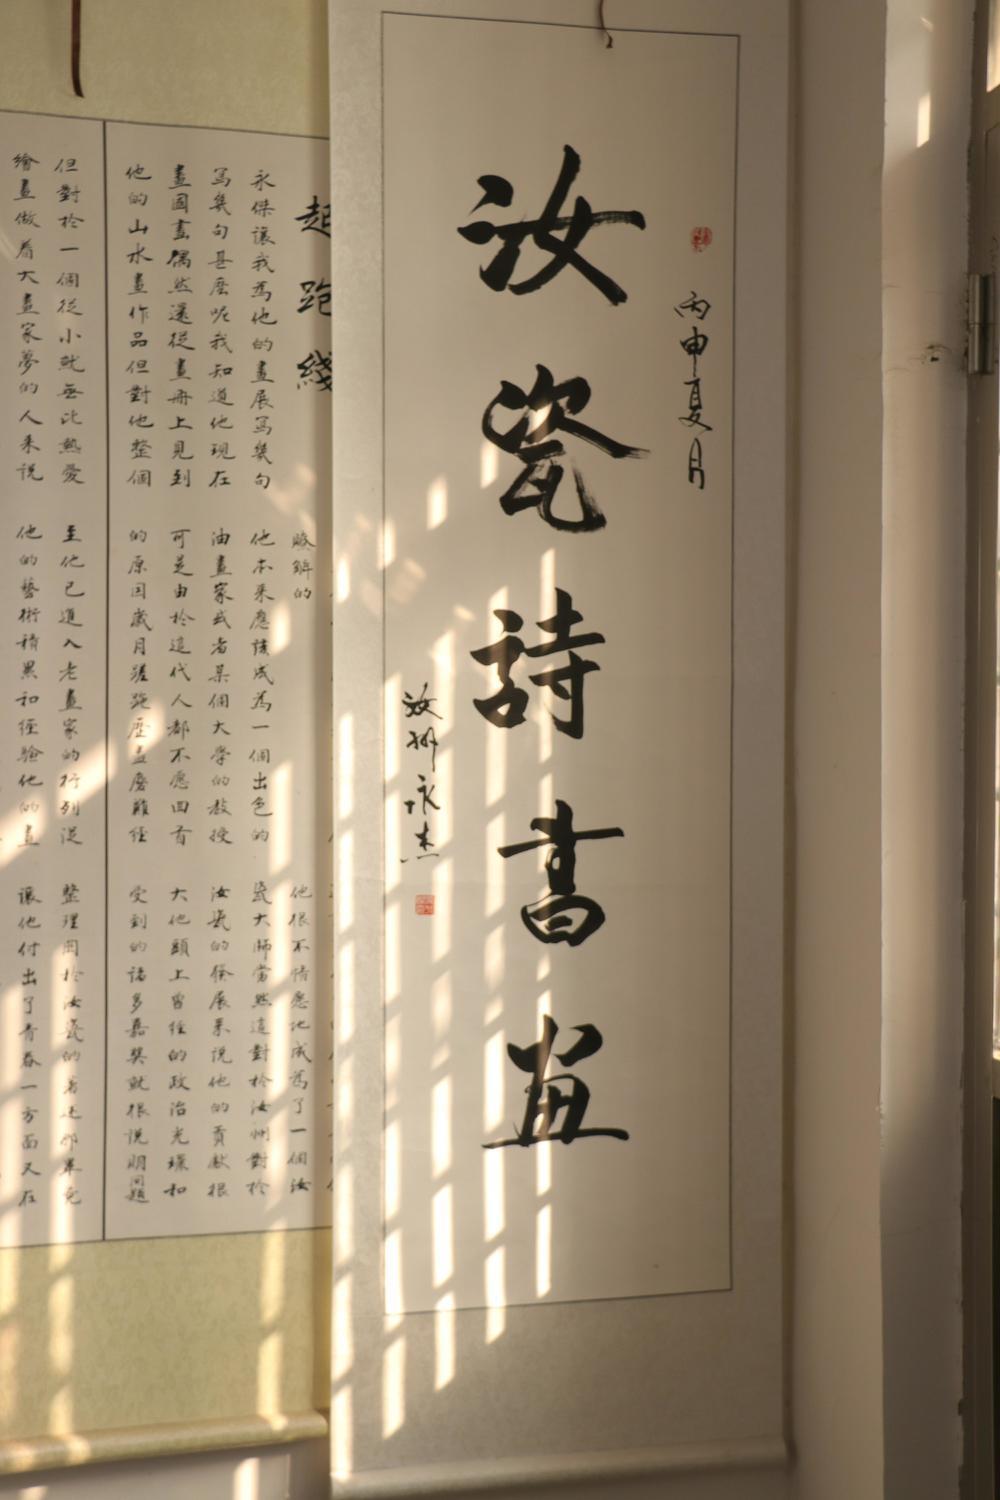 丙申夏月
汝瓷詩書畫
汝州永杰
起跑綫
永傑讓我為他的畫展寫幾句
寫幾句甚麼呢我知道他現在
畫國畫偶然還從畫冊上見到
他的山水畫作品但對他整個
瞭解的
他本來應該成為一個出色的
油畫家或者某個大學的教授
可是由於這代人都不愿回首
的原因歲月蹉跎歷盡磨難經
他很不情愿地成為了一個汝
瓷大師當然這對於汝州對於
汝瓷的發展來說他的貢獻很
大他頭上曾經的政治光環和
受到的諸多嘉獎就很說明問題
但對於一個從小就無比熱愛
繪畫做着大畫家夢的人來說
至他已進入老畫家的行列從
他的藝術積累和經驗他的畫
整理關於汝瓷的著述那畢竟
讓他付出了青春一方面又在